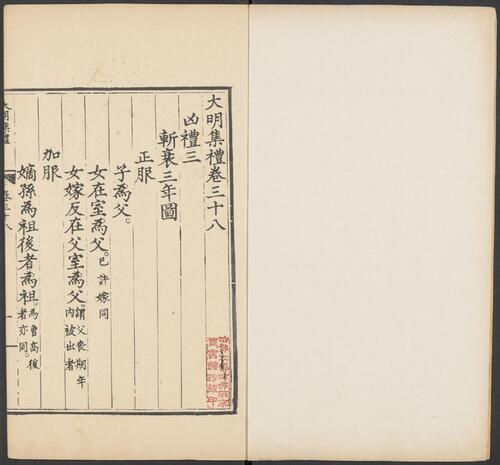 大明集禮卷三十八
凶禮三
斬衰三年圖
正服
子爲父。
女在室爲父。已許嫁同
女嫁反在父室爲父。謂父喪期年内被出者
加服
嫡孫爲祖後者爲祖。爲曾高後者亦同。
大明集禮
卷三十八
一